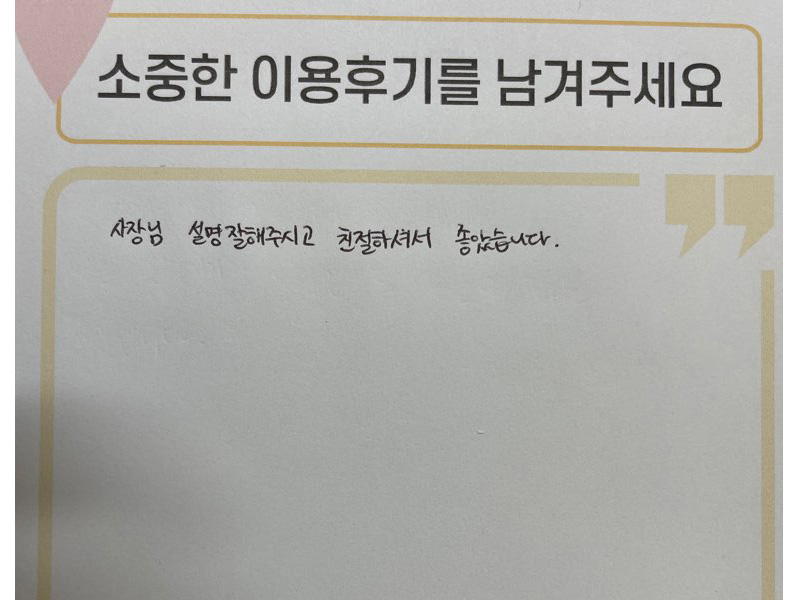 소중한 이용후기를 남겨주세요
사장님 설명잘해주시고 친절하셔서 좋았습니다.